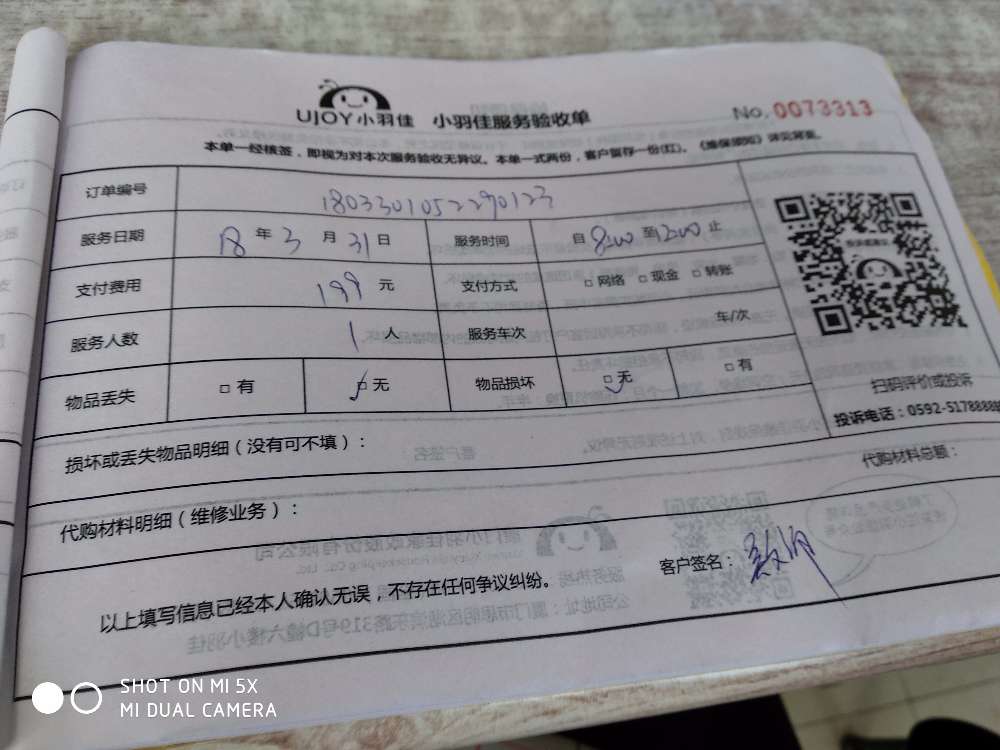 UJOY小羽佳 小羽佳服务验收单 No. 0073313
本单一经核签，即视为对本次服务验收无异议。本单一式两份，客户留存一份(红)。《维保须知》详见背面。
订单编号 1803301052290123
服务日期 18 年 3 月 31 日 服务时间 自 8:00 至 12:00 止
支付费用 199 元 支付方式 □ 网络 □ 现金 □ 转账
服务人数 1 人 服务车次 车/次
物品丢失 □ 有 □ 无 物品损坏 □ 无 □ 有
扫码评价或投诉
投诉电话：0592-5178888
损坏或丢失物品明细（没有可不填）：
代购材料明细（维修业务）： 代购材料总额：
以上填写信息已经本人确认无误，不存在任何争议纠纷。 客户签名：
SHOT ON MI 5X
MI DUAL CAMERA